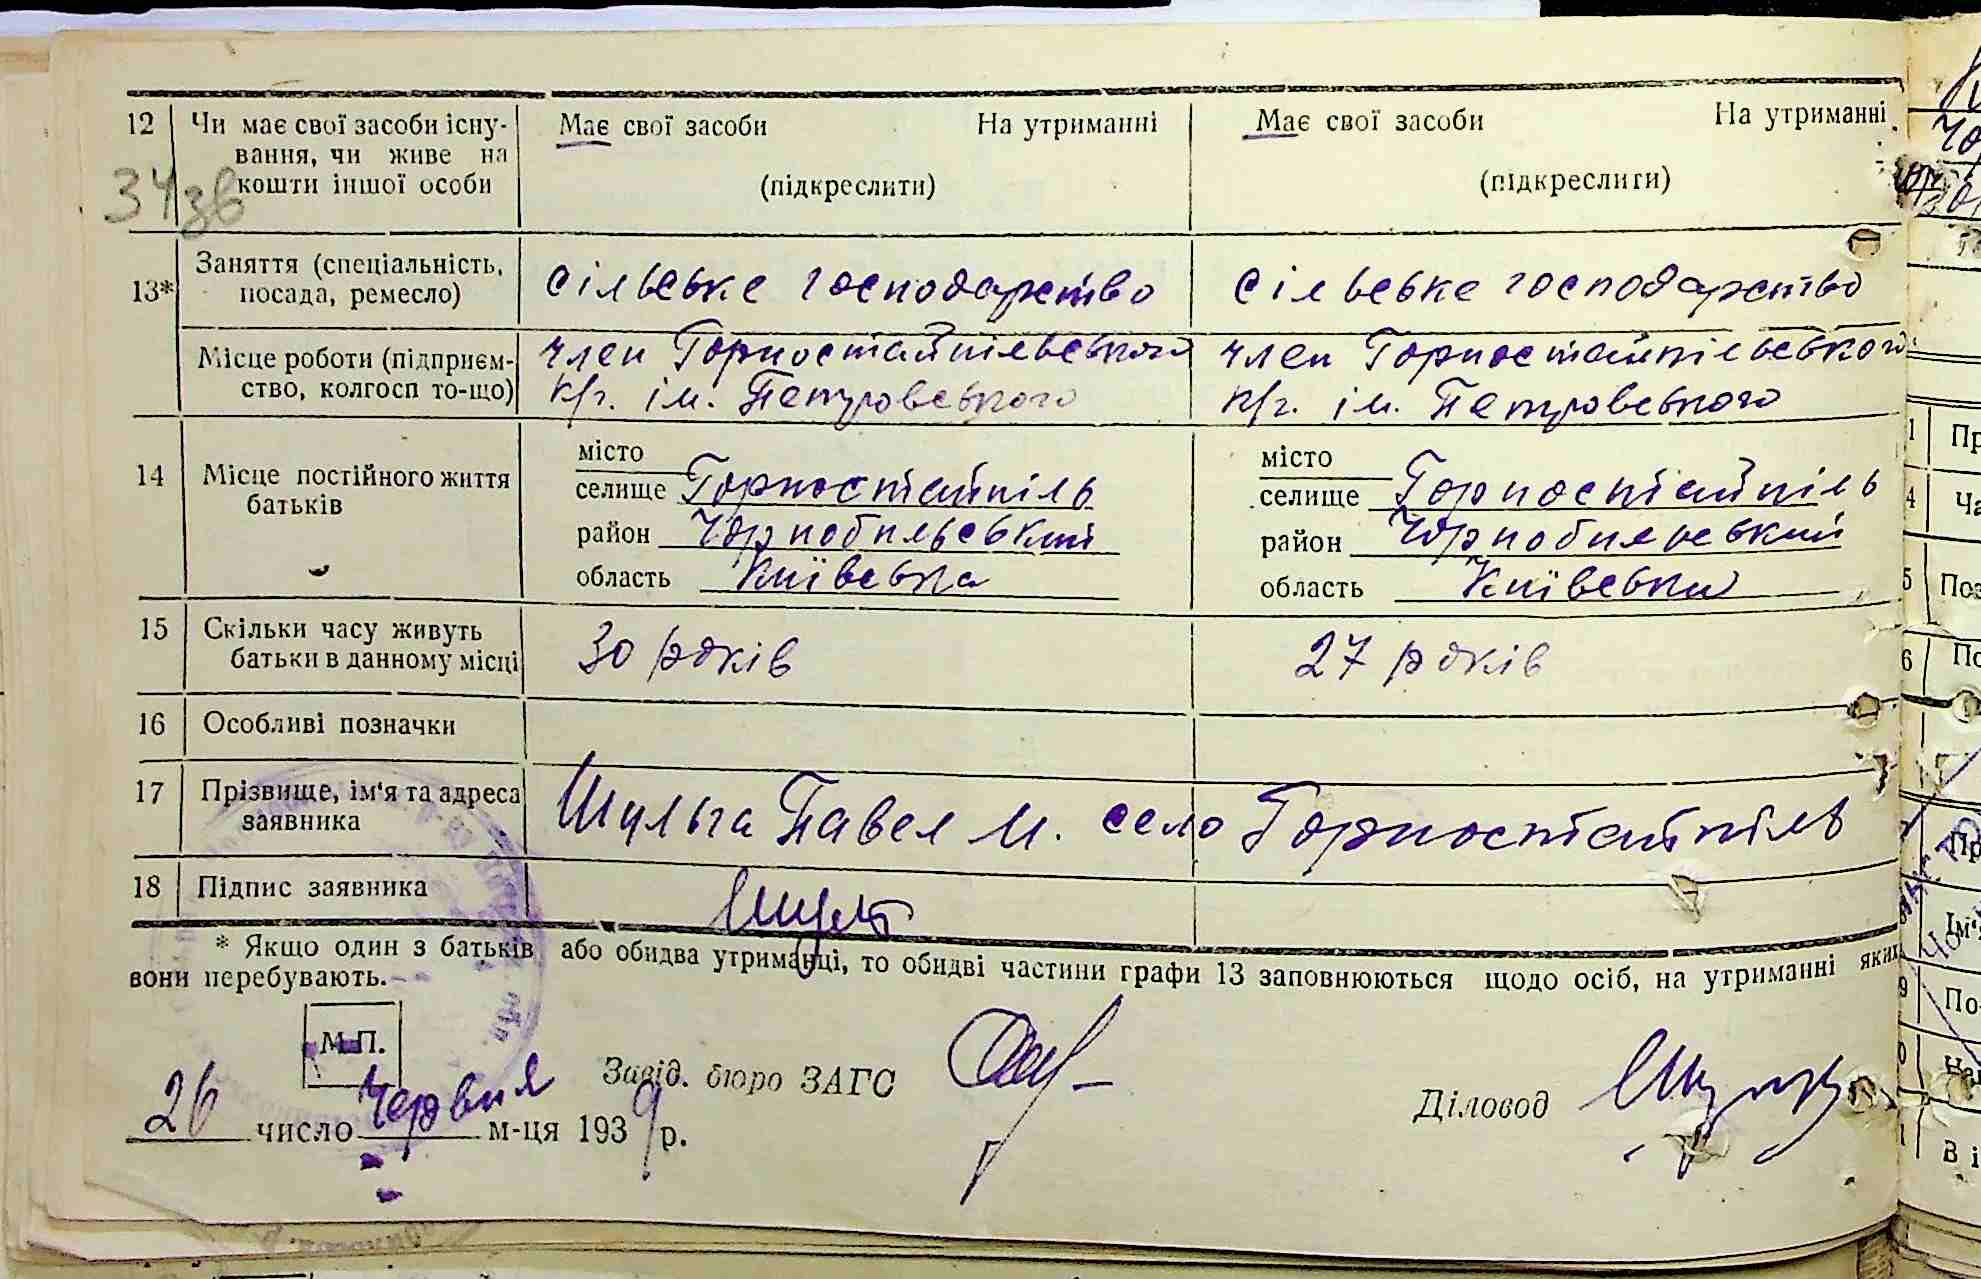 12 Чи має свої засоби існу- Має свої засоби На утриманні Має свої засоби На утриманні
вання, чи живе на
кошти іншої особи (підкреслити) (підкреслити)
34зв
13* Заняття (спеціальність, посада, ремесло) сільське господарство сільське господарство
Місце роботи (підприєм- член Горностайпільського член Горностайпільського
ство, колгосп то-що) к/г. ім. Петровського к/г. ім. Петровського
місто місто
14 Місце постійного життя селище Горностайпіль селище Горностайпіль
батьків район Чорнобильський район Чорнобильський
область Київська область Київська
15 Скільки часу живуть 30 років 27 років
батьки в данному місці
16 Особливі позначки
17 Прізвище, ім'я та адреса Шульга Павел М. село Горностайпіль
заявника
18 Підпис заявника
* Якщо один з батьків або обидва утриманці, то обидві частини графи 13 заповнюються щодо осіб, на утриманні яких
вони перебувають.
М.П.
Завід. бюро ЗАГС
Діловод
26 число Червня м-ця 1939 р.